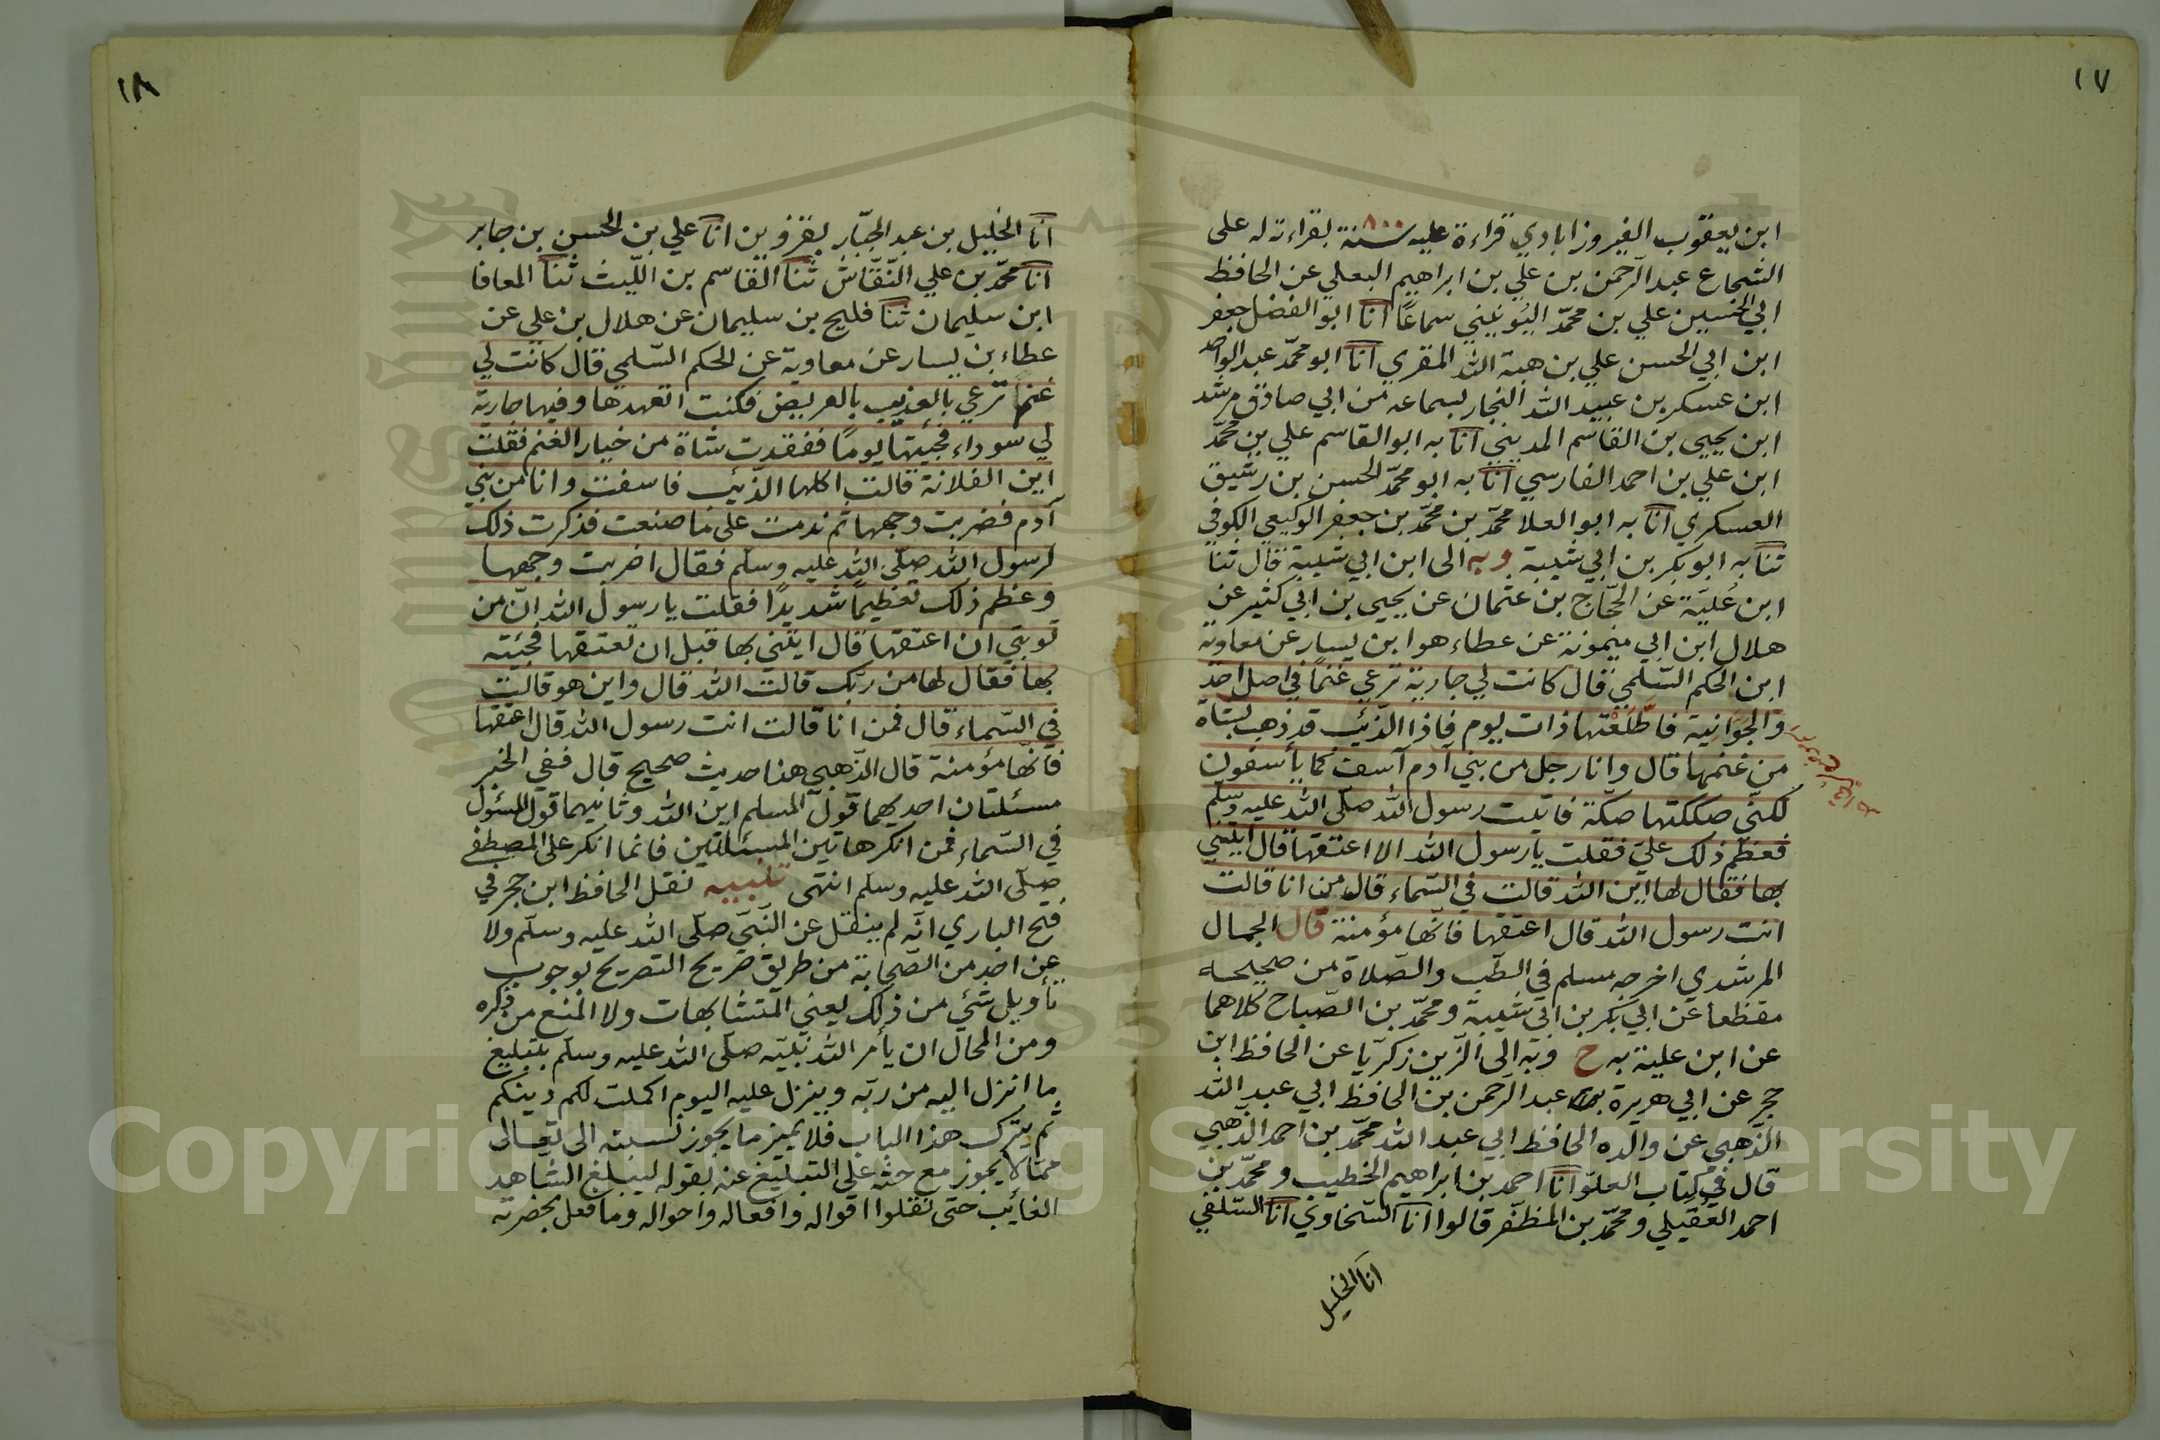 ١٧
ابن يعقوب الفيروزابادي قراءة عليه سنة ٨٠٠ بقراءته له على
الشجاع عبد الرحمن بن علي بن ابراهيم البعلي عن الحافظ
ابي الحسين علي بن محمّد اليُونيني سماعًا انا ابو الفضل جعفر
ابن ابي الحسن علي بن هبة الله المقري انا ابو محمّد عبد الواحد
ابن عسكر بن عبيد الله النجار بسماعه من ابي صادق مرشد
ابن يحيى بن القاسم المديني انا به ابو القاسم علي بن محمّد
ابن علي بن احمد الفارسي انا به ابو محمّد الحسن بن رشيق
العسكري انا به ابو العلا محمّد بن محمّد بن جعفر الوكيعي الكوفي
ثنا به ابو بكر بن ابي شيبة وبه الى ابن ابي شيبة قال ثنا
ابن عُليَّة عن الحجّاج بن عثمان عن يحيى بن ابي كثير عن
هلال ابن ابي ميمونة عن عطاء هو ابن يسار عن معاوية
ابن الحكم السّلمي قال كانت لي جارية ترعي غنمًا في اصل احد
والجوّانية فاطّلعْتها ذات يوم فاذا الذّئب قد ذهب بشاة
من غنمها قال وانا رجل من بني آدم آسف كما يأسفون
لكنّي صككتها صكّة فاتيت رسول الله صلّى الله عليه وسلّم
فعظّم ذلك عليّ فقلت يا رسول الله الا اعتقها قال ايتني
بها فقال لها اين الله قالت في السّماء قال من انا قالت
انت رسول الله قال اعتقها فانّها مؤمنة قال الجمال
المرشدي اخرجه مسلم في الطّب والصّلاة من صحيحه
مقطعا عن ابي بكر بن ابي شيبة ومحمّد بن الصّباح كلاهما
عن ابن علية به ح وبه الى الزّين زكريّا عن الحافظ ابن
حجر عن ابي هريرة عبد الرحمن بن الحافظ ابي عبد الله
الذّهبي عن والده الحافظ ابي عبد الله محمّد بن احمد الذّهبي
قال في كتاب العلوّ انا احمد بن ابراهيم الخطيب ومحمّد بن
احمد العُقيلي ومحمّد بن المظفّر قالوا انا السّخاوي انا السّلفي
انا الخليل
١٨
انا الخليل بن عبد الجبّار بقزوين انا علي بن الحسن بن جابر
انا محمّد بن علي النّقّاش ثنا القاسم بن اللّيث ثنا المعافا
ابن سليمان ثنا فليح بن سليمان عن هلال بن علي عن
عطاء بن يسار عن معاوية عن الحكم السّلمي قال كانت لي
غنم ترعي بالعريض فكنت اتعهدها وفيها جارية
لي سوداء فجئيتها يومًا ففقدت شاة من خيار الغنم فقلت
اين الفلانة قالت اكلها الذّئب فاسفت وانا من بني
آدم فضربت وجهها ثم ندمت على ما صنعت فذكرت ذلك
لرسول الله صلّى الله عليه وسلّم فقال اضربت وجهها
وعظم ذلك تعظيمًا شديدًا فقلت يا رسول الله انّ من
توبتي ان اعتقها قال ايتني بها قبل ان تعتقها فجئته
بها فقال لها من ربّك قالت الله قال واين هو قالت
في السّماء قال فمن انا قالت انت رسول الله قال اعتقها
فانّها مؤمنة قال الذّهبي هذا حديث صحيح قال ففي الخبر
مسئلتان احديهما قول المسلم اين الله وثانيهما قول المسئول
في السّماء فمن انكر هاتين المسئلتين فانما انكر على المصطفى
صلّى الله عليه وسلم انتهى تنبيه نقل الحافظ ابن حجر في
فتح الباري انّه لم ينقل عن النّبيّ صلّى الله عليه وسلّم ولا
عن احد من الصّحابة من طريق صريح التصريح بوجوب
تأويل شئ من ذلك يعني المتشابهات ولا المنع من ذكره
ومن المحال ان يأمر الله نبّيه صلّى الله عليه وسلّم بتبليغ
ما انزل اليه من ربّه وينزل عليه اليوم اكملت لكم دينكم
ثم يترك هذا الباب فلا يميز ما يجوز نسبته الى الله تعالى
ممّا لا يجوز مع حثه على التبليغ عنه بقوله ليبلغ الشاهد
الغائب حتى نقلوا اقواله وافعاله واحواله وما فعل بحضرته
Copyright © King Saud University